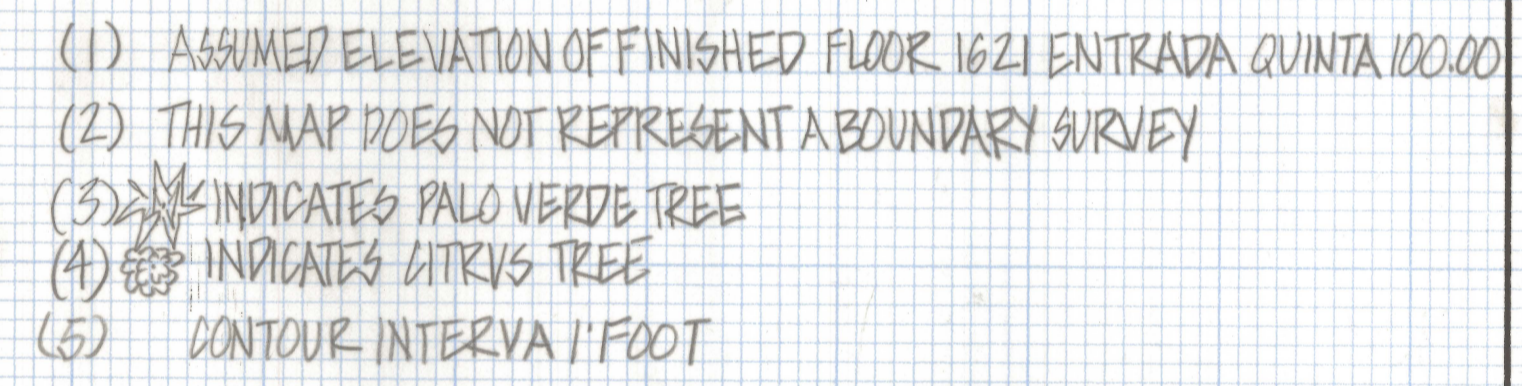 (1) ASSUMED ELEVATION OF FINISHED FLOOR 1621 ENTRADA QUINTA 100.00
(2) THIS MAP DOES NOT REPRESENT A BOUNDARY SURVEY
(3) INDICATES PALO VERDE TREE
(4) INDICATES CITRUS TREE
(5) CONTOUR INTERVA 1' FOOT